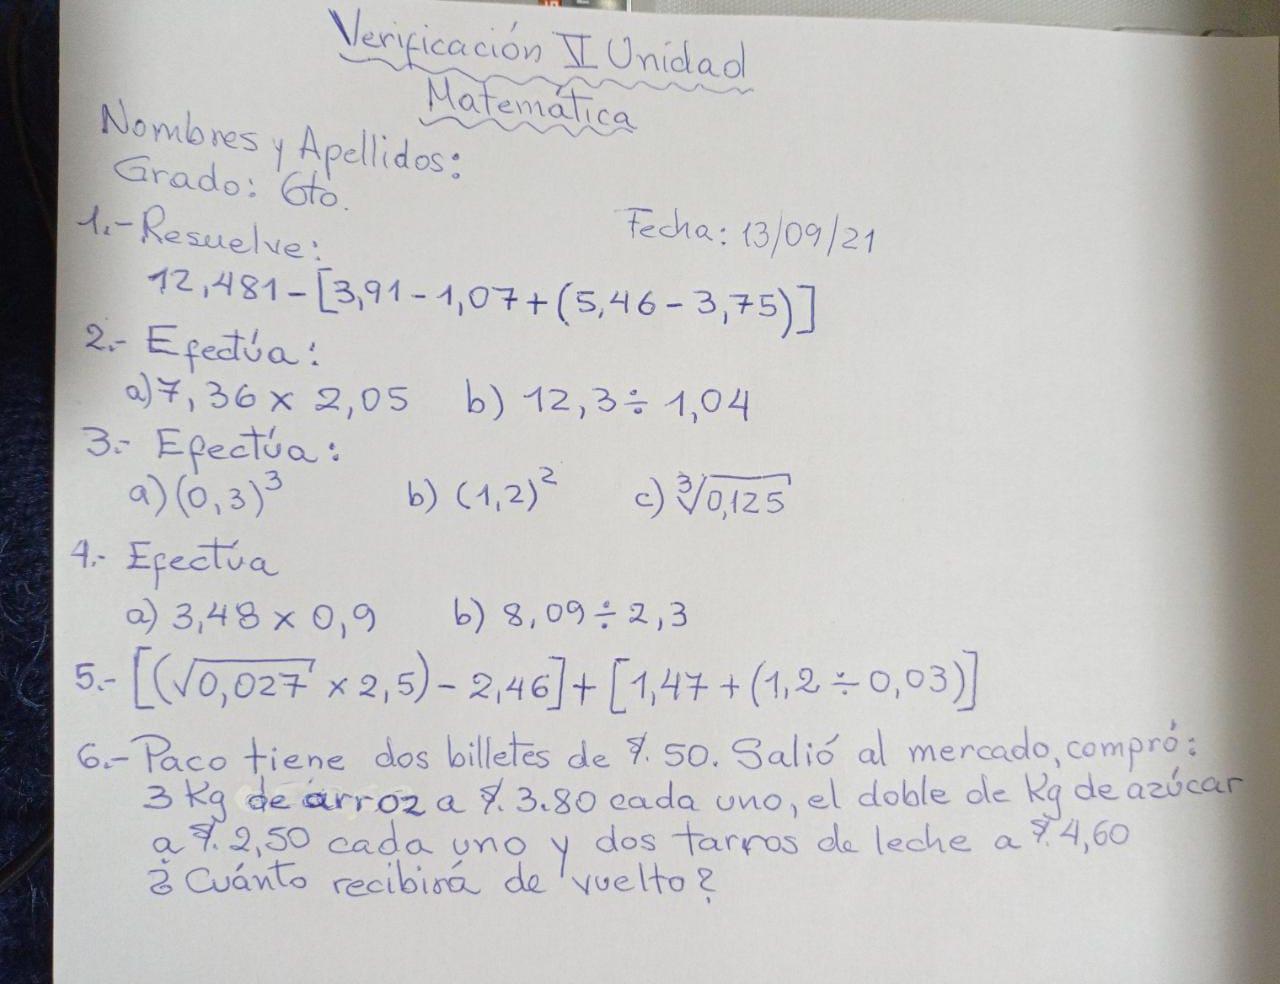 Verificación VI Unidad
Matemática
Nombres y Apellidos:
Grado: 6to.
Fecha: 13/09/21
1.- Resuelve:
12,481 - [3,91 - 1,07 + (5,46 - 3,75)]
2.- Efectúa:
a) 7,36 x 2,05 b) 12,3 ÷ 1,04
3.- Efectúa:
a) (0,3)³ b) (1,2)² c) ∛0,125
4.- Efectúa
a) 3,48 x 0,9 b) 8,09 ÷ 2,3
5.- [(√0,027 x 2,5) - 2,46] + [1,47 + (1,2 ÷ 0,03)]
6.- Paco tiene dos billetes de S/. 50. Salió al mercado, compró:
3 Kg de arroz a S/. 3.80 cada uno, el doble de Kg de azúcar
a S/. 2,50 cada uno y dos tarros de leche a S/. 4,60
¿Cuánto recibirá de vuelto?